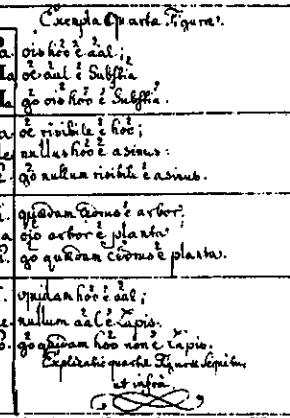 Exempla Quarta Figura.
a ois hoo é aal;
la oe aal é Substia
la go ois hoo é Substia.
a. oe risibile é hoo;
le. nullus hoo é asinus:
go nullum risibile é asinus.
quidam Cedrus é arbor:
a. ois arbor é planta
i. go quidam Cedrus é planta.
quidam hoo é aal;
e. nullum aal é Lapis.
o. go quidam hoo non é Lapis.
Explicatio quartae Figurae
ut infra